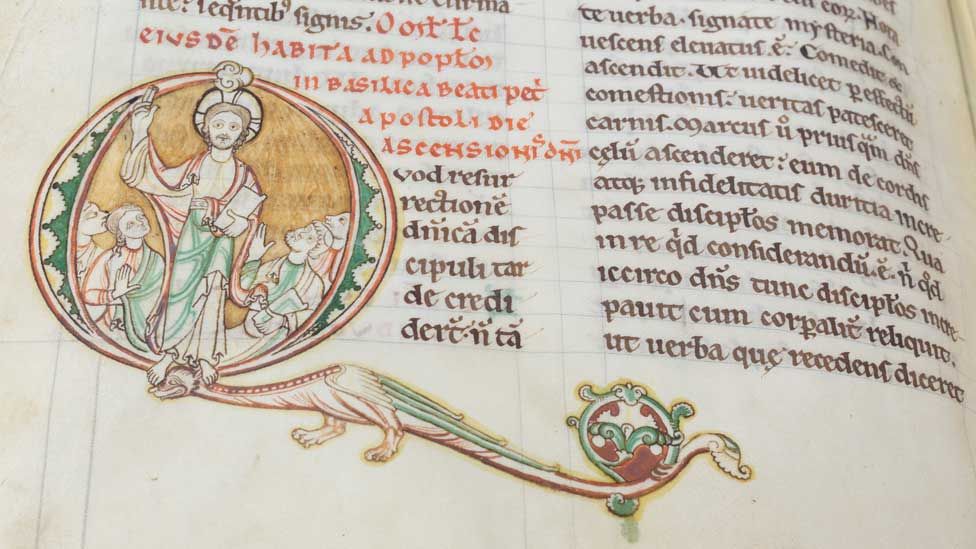 sequentib; signis.
EIUSDĒ HABITA AD POPL̄OS
IN BASILICA BEATI PET̄
APOSTOLI DIE
ASCENSIONIS DN̄I
Quod resur
rectionē
dn̄ica dis
cipuli tar
de credi
der̄t. n̄ tā
te uerba. signate mysteria. Con
uescens eleuatus ē. Comedit &
ascendit. Ut uidelicet p effectū
comestionis. ueritas patesceret
carnis. Marcus ů priusq̄m dn̄s
celū ascenderet. eum de cordis
atq; infidelitatis duritia incre
passe discipl̄os memorat. Qua
in re q̄d considerandū ē. n̄ q̄d
iccirco dn̄s tunc discipl̄os incre
pauit cum corpalit̄ reliquit.
ut uerba quę recedens diceret